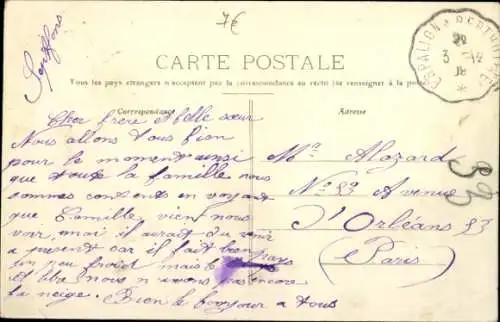 7€
CARTE POSTALE
Tous les pays étrangers n'acceptent pas la correspondance au recto (se renseigner à la poste)
Correspondance
Adresse
ESPALION A BERTHOLÈNE
3 -12
18
Cher frère & Belle sœur
Nous allons tous bien
pour le moment ainsi
que toute la famille nous
sommes contents en voyant
que Camille vient nous
voir, moi il aurait du venir
a present car il fait
un peu froid mais
et nous n avons pas encore
la neige. Bien le bonjour a tous
Mr Alazard
No 93 Avenue
d'Orléans 93
(Paris)
93